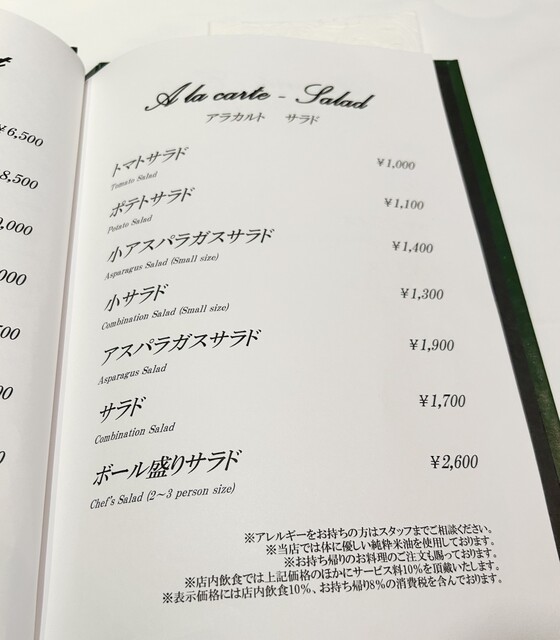 A la carte - Salad
アラカルト サラド
トマトサラド ¥1,000
Tomato Salad
ポテトサラド ¥1,100
Potato Salad
小アスパラガスサラド ¥1,400
Asparagus Salad (Small size)
小サラド ¥1,300
Combination Salad (Small size)
アスパラガスサラド ¥1,900
Asparagus Salad
サラド ¥1,700
Combination Salad
ボール盛りサラド ¥2,600
Chef's Salad (2～3 person size)
※アレルギーをお持ちの方はスタッフまでご相談ください。
※当店では体に優しい純粋米油を使用しております。
※お持ち帰りのお料理のご注文も賜っております。
※店内飲食では上記価格のほかにサービス料10%を頂戴いたします。
※表示価格には店内飲食10%、お持ち帰り8%の消費税を含んでおります。
¥6,500
8,500